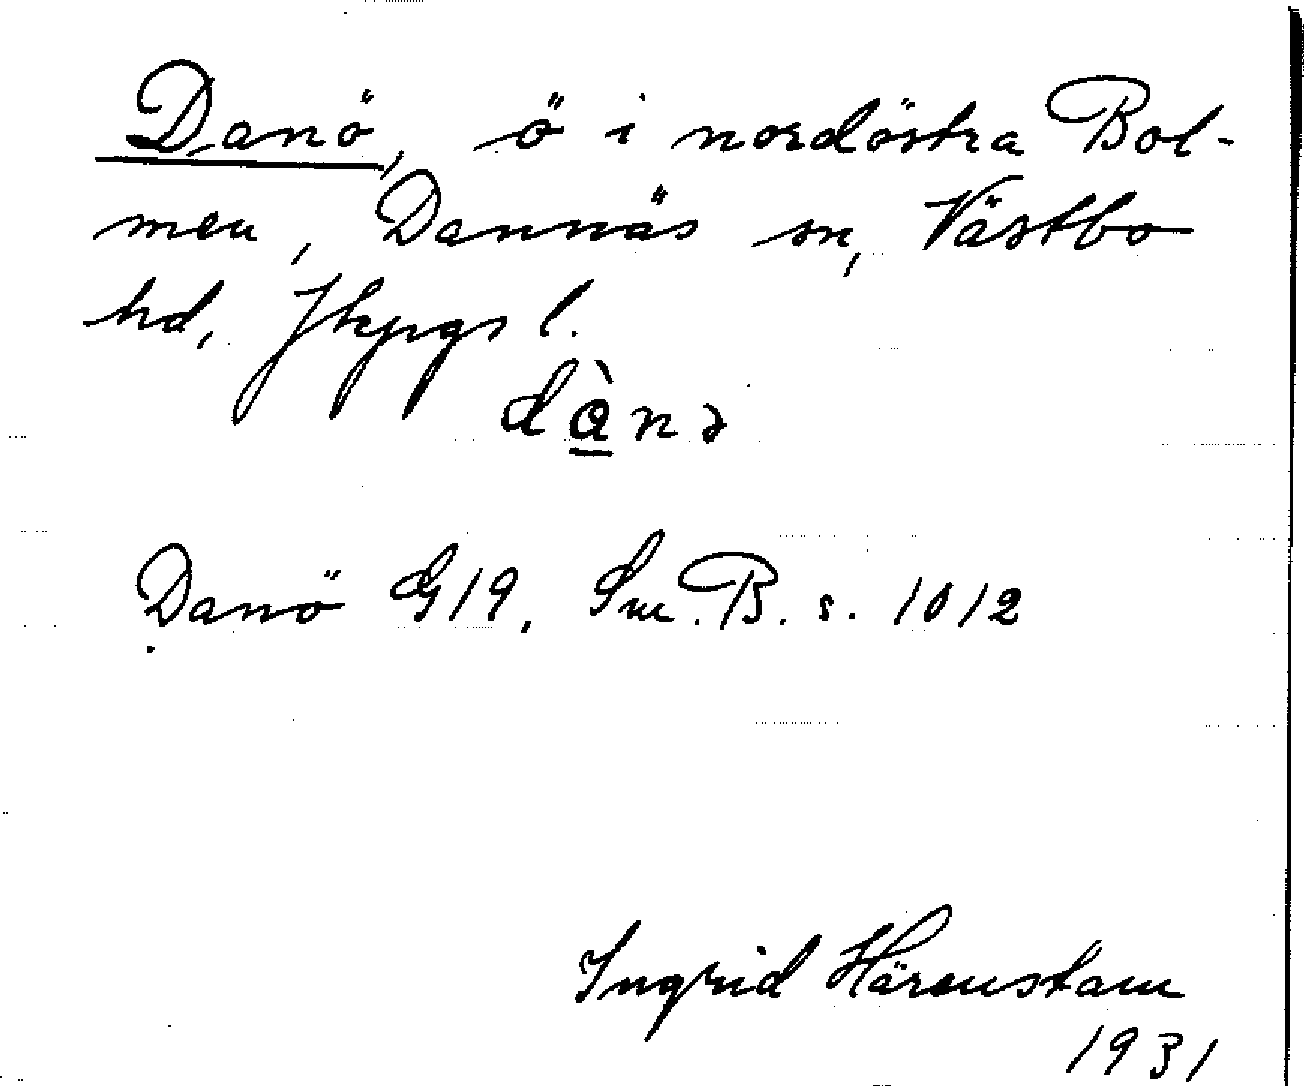 Danö, ö i nordöstra Bol-
men, Dannäs sn, Västbo
hd, Jkpgs l.
dànə
Danö G19, Sm.B. s. 1012
Ingrid Härenstam
1931